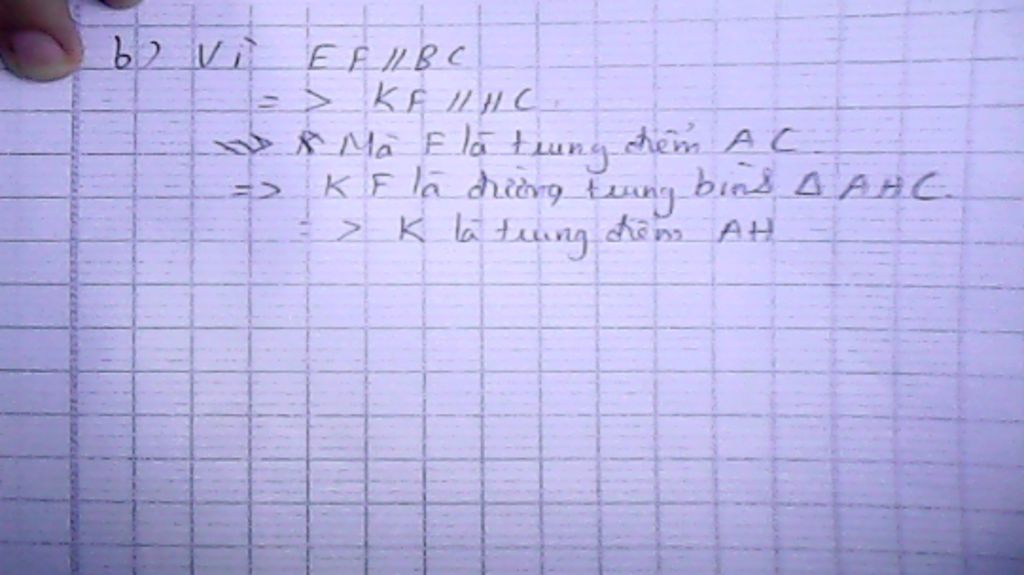 b) Vì EF // BC
=> KF // HC
=> Mà F là trung điểm AC.
=> KF là đường trung bình Δ AHC.
=> K là trung điểm AH